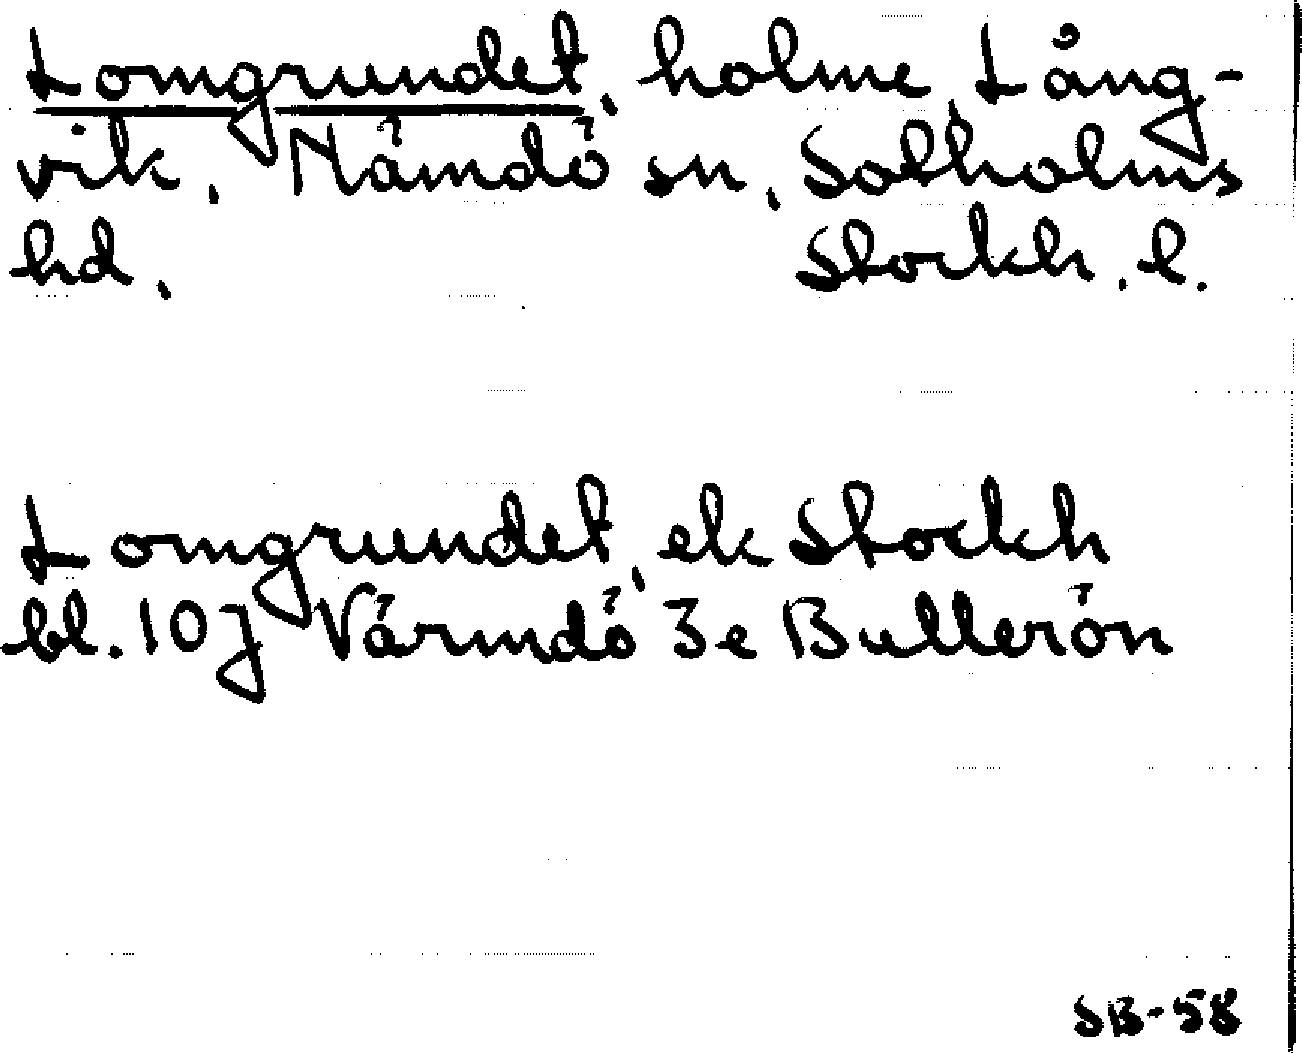 Lomgrundet, holme, Lång-
vik, Nämdö sn, Sotholms
hd, Stockh. l.
Lomgrundet, ek Stockh
bl. 10J Värmdö 3e Bullerön
SB-58